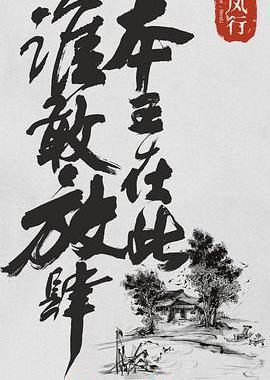 本王在此
谁敢放肆
风行